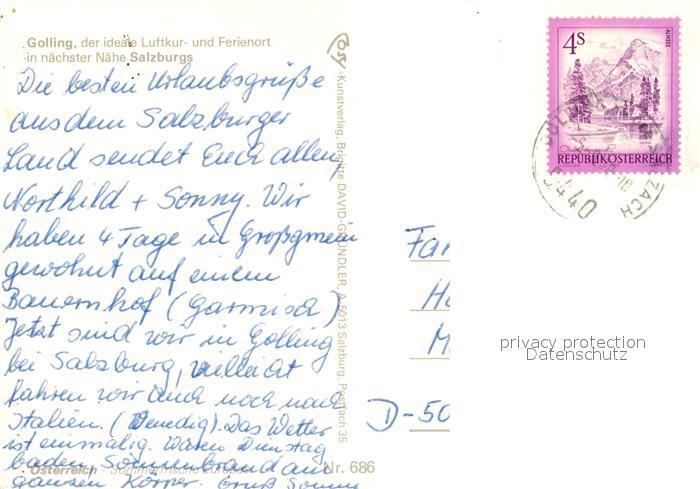 Golling, der ideale Luftkur- und Ferienort
in nächster Nähe Salzburgs
Die besten Urlaubsgrüße
aus dem Salzburger
Land sendet Euch allen,
Northild + Sonny. Wir
haben 4 Tage in Großgmein
gewohnt auf einem
Bauernhof (Garmisch)
Jetzt sind wir in Golling
bei Salzburg, vielleicht
fahren wir auch noch nach
Italien (Venedig). Das Wetter
ist einmalig. Waren Dienstag
baden Sonnenbrand am
ganzen Körper. Gruß Sonny
Österreich - Sommerfrische Europas
Nr. 686
Kunstverlag, Brigitte DAVID-GRÜNDLER, A-5013 Salzburg, Postfach 35
4 S
ALMSEE
REPUBLIK ÖSTERREICH
5440
SALZACH
Fa
H
M
D-50
privacy protection
Datenschutz